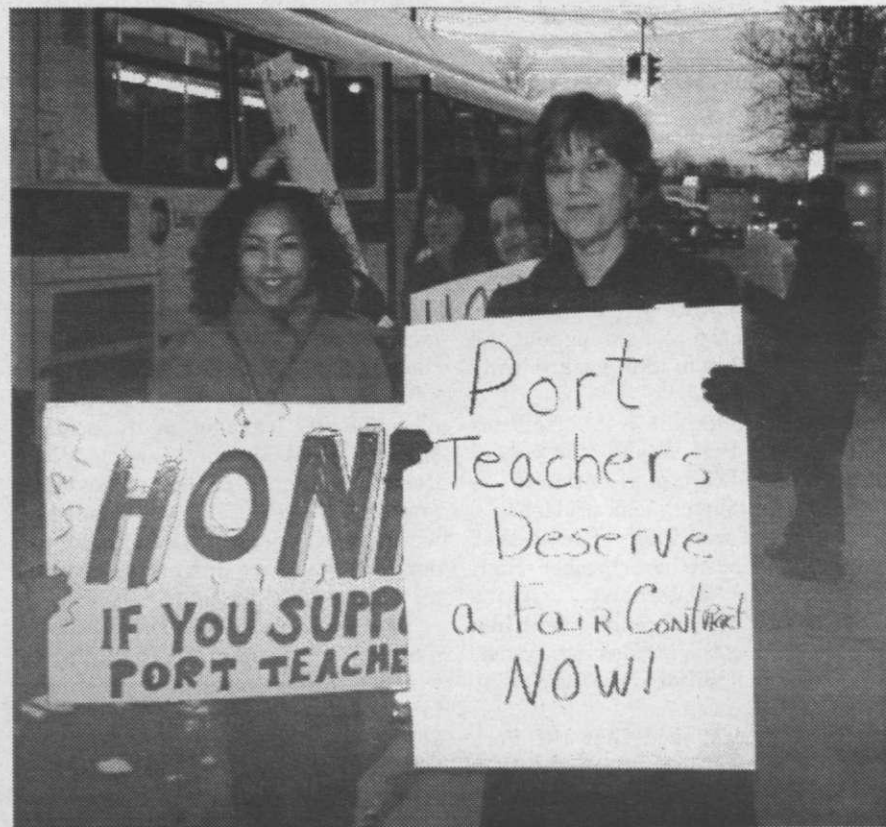 HON
IF YOU SUPP
PORT TEACHE
HO
Port
Teachers
Deserve
a FAIR CONTRACT
NOW!